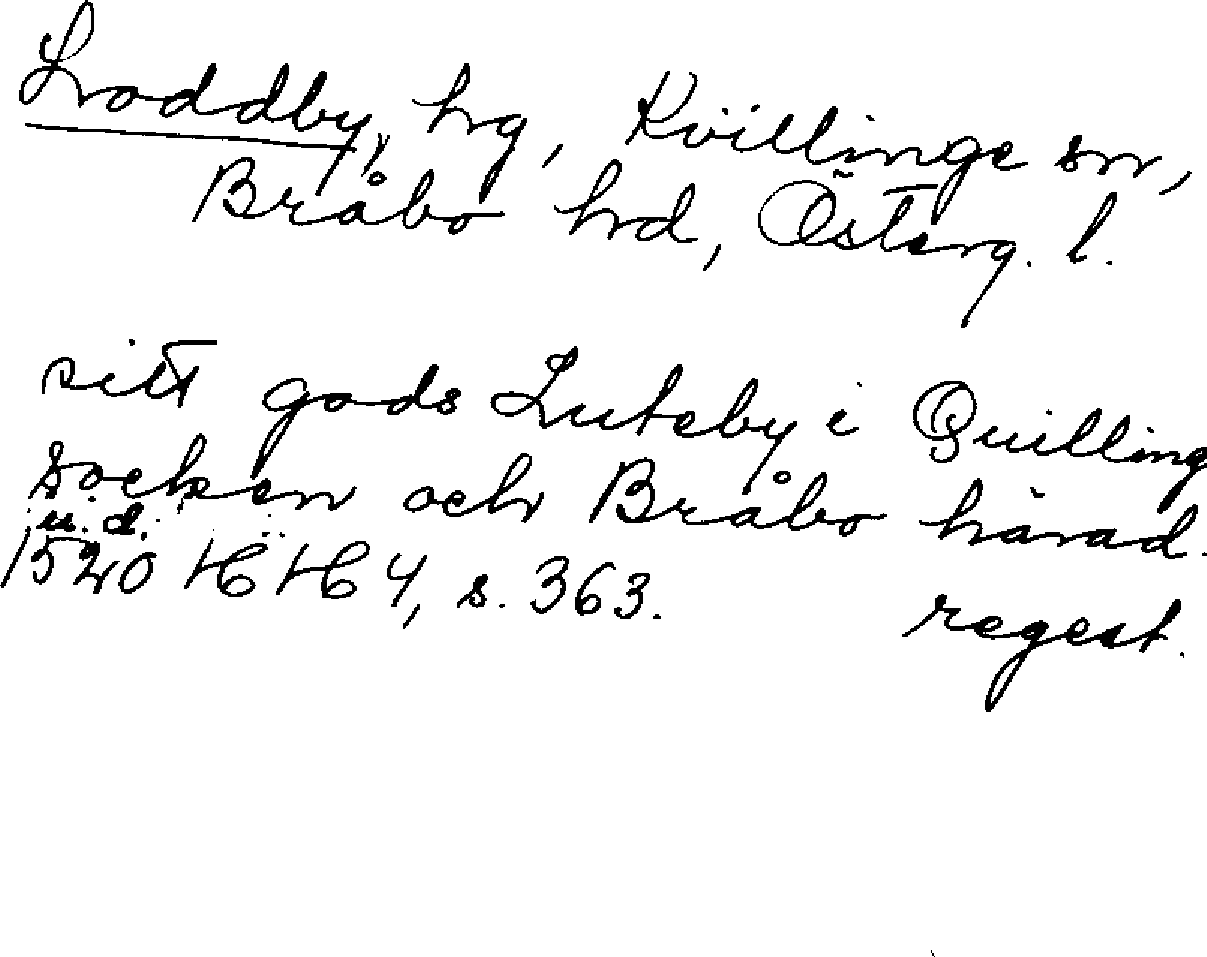 Loddby, hg, Kvillinge sn,
Bråbo hd, Österg. l.
sitt gods Luteby i Quilling
socken och Bråbo härad.
u. d.
1520 HH 4, s. 363. regest.